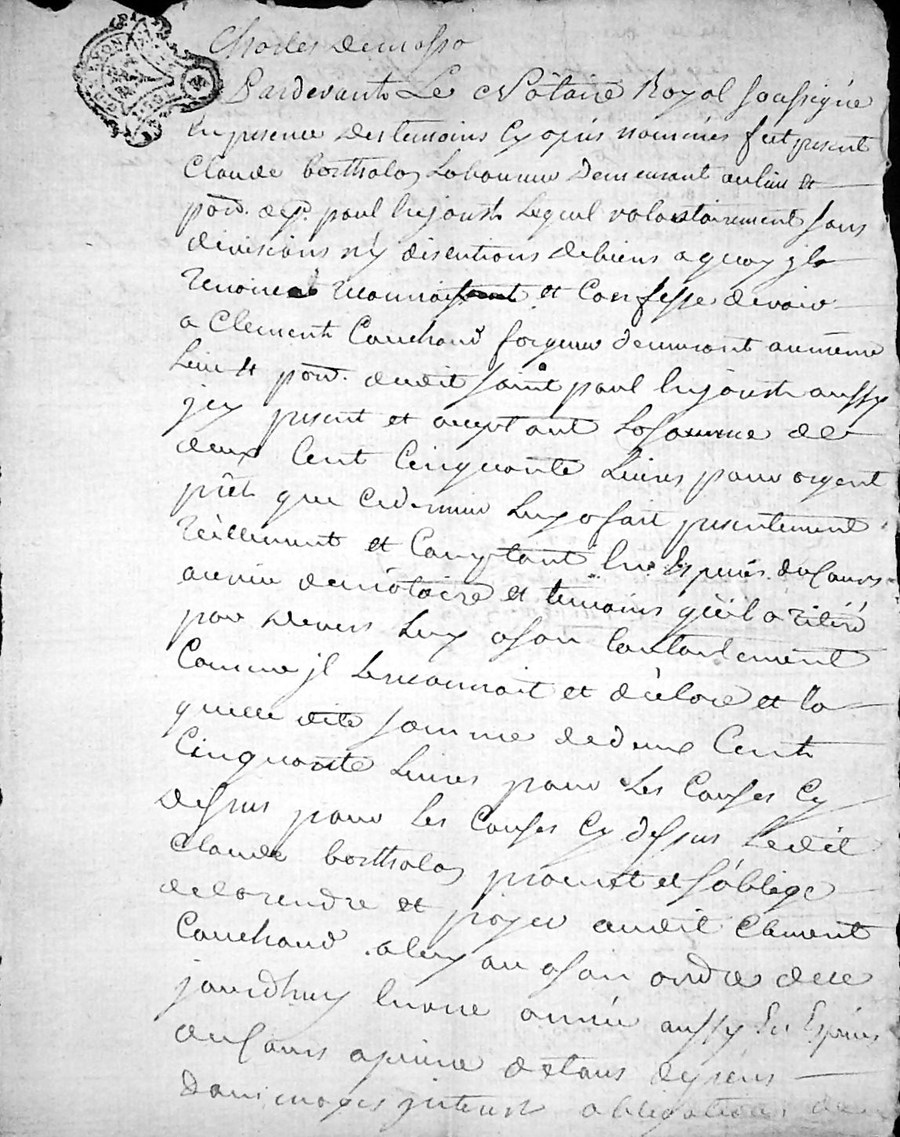 Pardevant Le Nôtaire Royal soussigné
En presence des temoins Cy apres nommés fut present
Claude bertholon Laboureur demeurant au lieu et
parr. de st. paul En jarest Lequel volontairement sans
divisions n'y discutions de biens a quoy jl
renonce reconnait et Confesse devoir
a Clement Couchoud forgeur demeurant au même
Lieu et parr. dudit saint paul En jarest aussy
jcy present et acceptant La somme de
deux Cent Cinquante Livres pour argent
prêt que Ce dernier Luy a fait presentement
réellement et Comptant En Especes du Cours
au veu de notaire et témoins qu'il a retiré
par devers Luy a son Contentement
Comme jl Le reconnait et déclare et la
quelle dite somme de deux Cent
Cinquante Livres pour Les Causes Cy
dessus pour Les Causes Cy dessus Ledit
Claude bertholon promet et s'oblige
de la rendre et payer audit Clement
Couchoud a luy ou a son ordre de ce
jourdhuy En une année aussy En Especes
du Cours a peine de tous depens
dommages jnterest obligations de